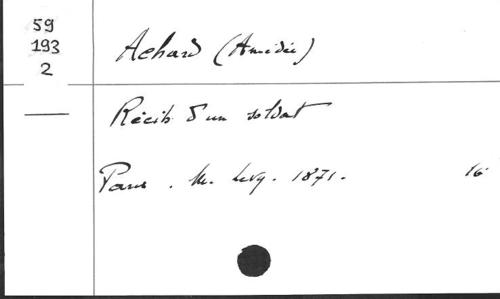 59
193
2
Achard (Amédée)
Récits d'un soldat
Paris. M. Levy. 1871.
16